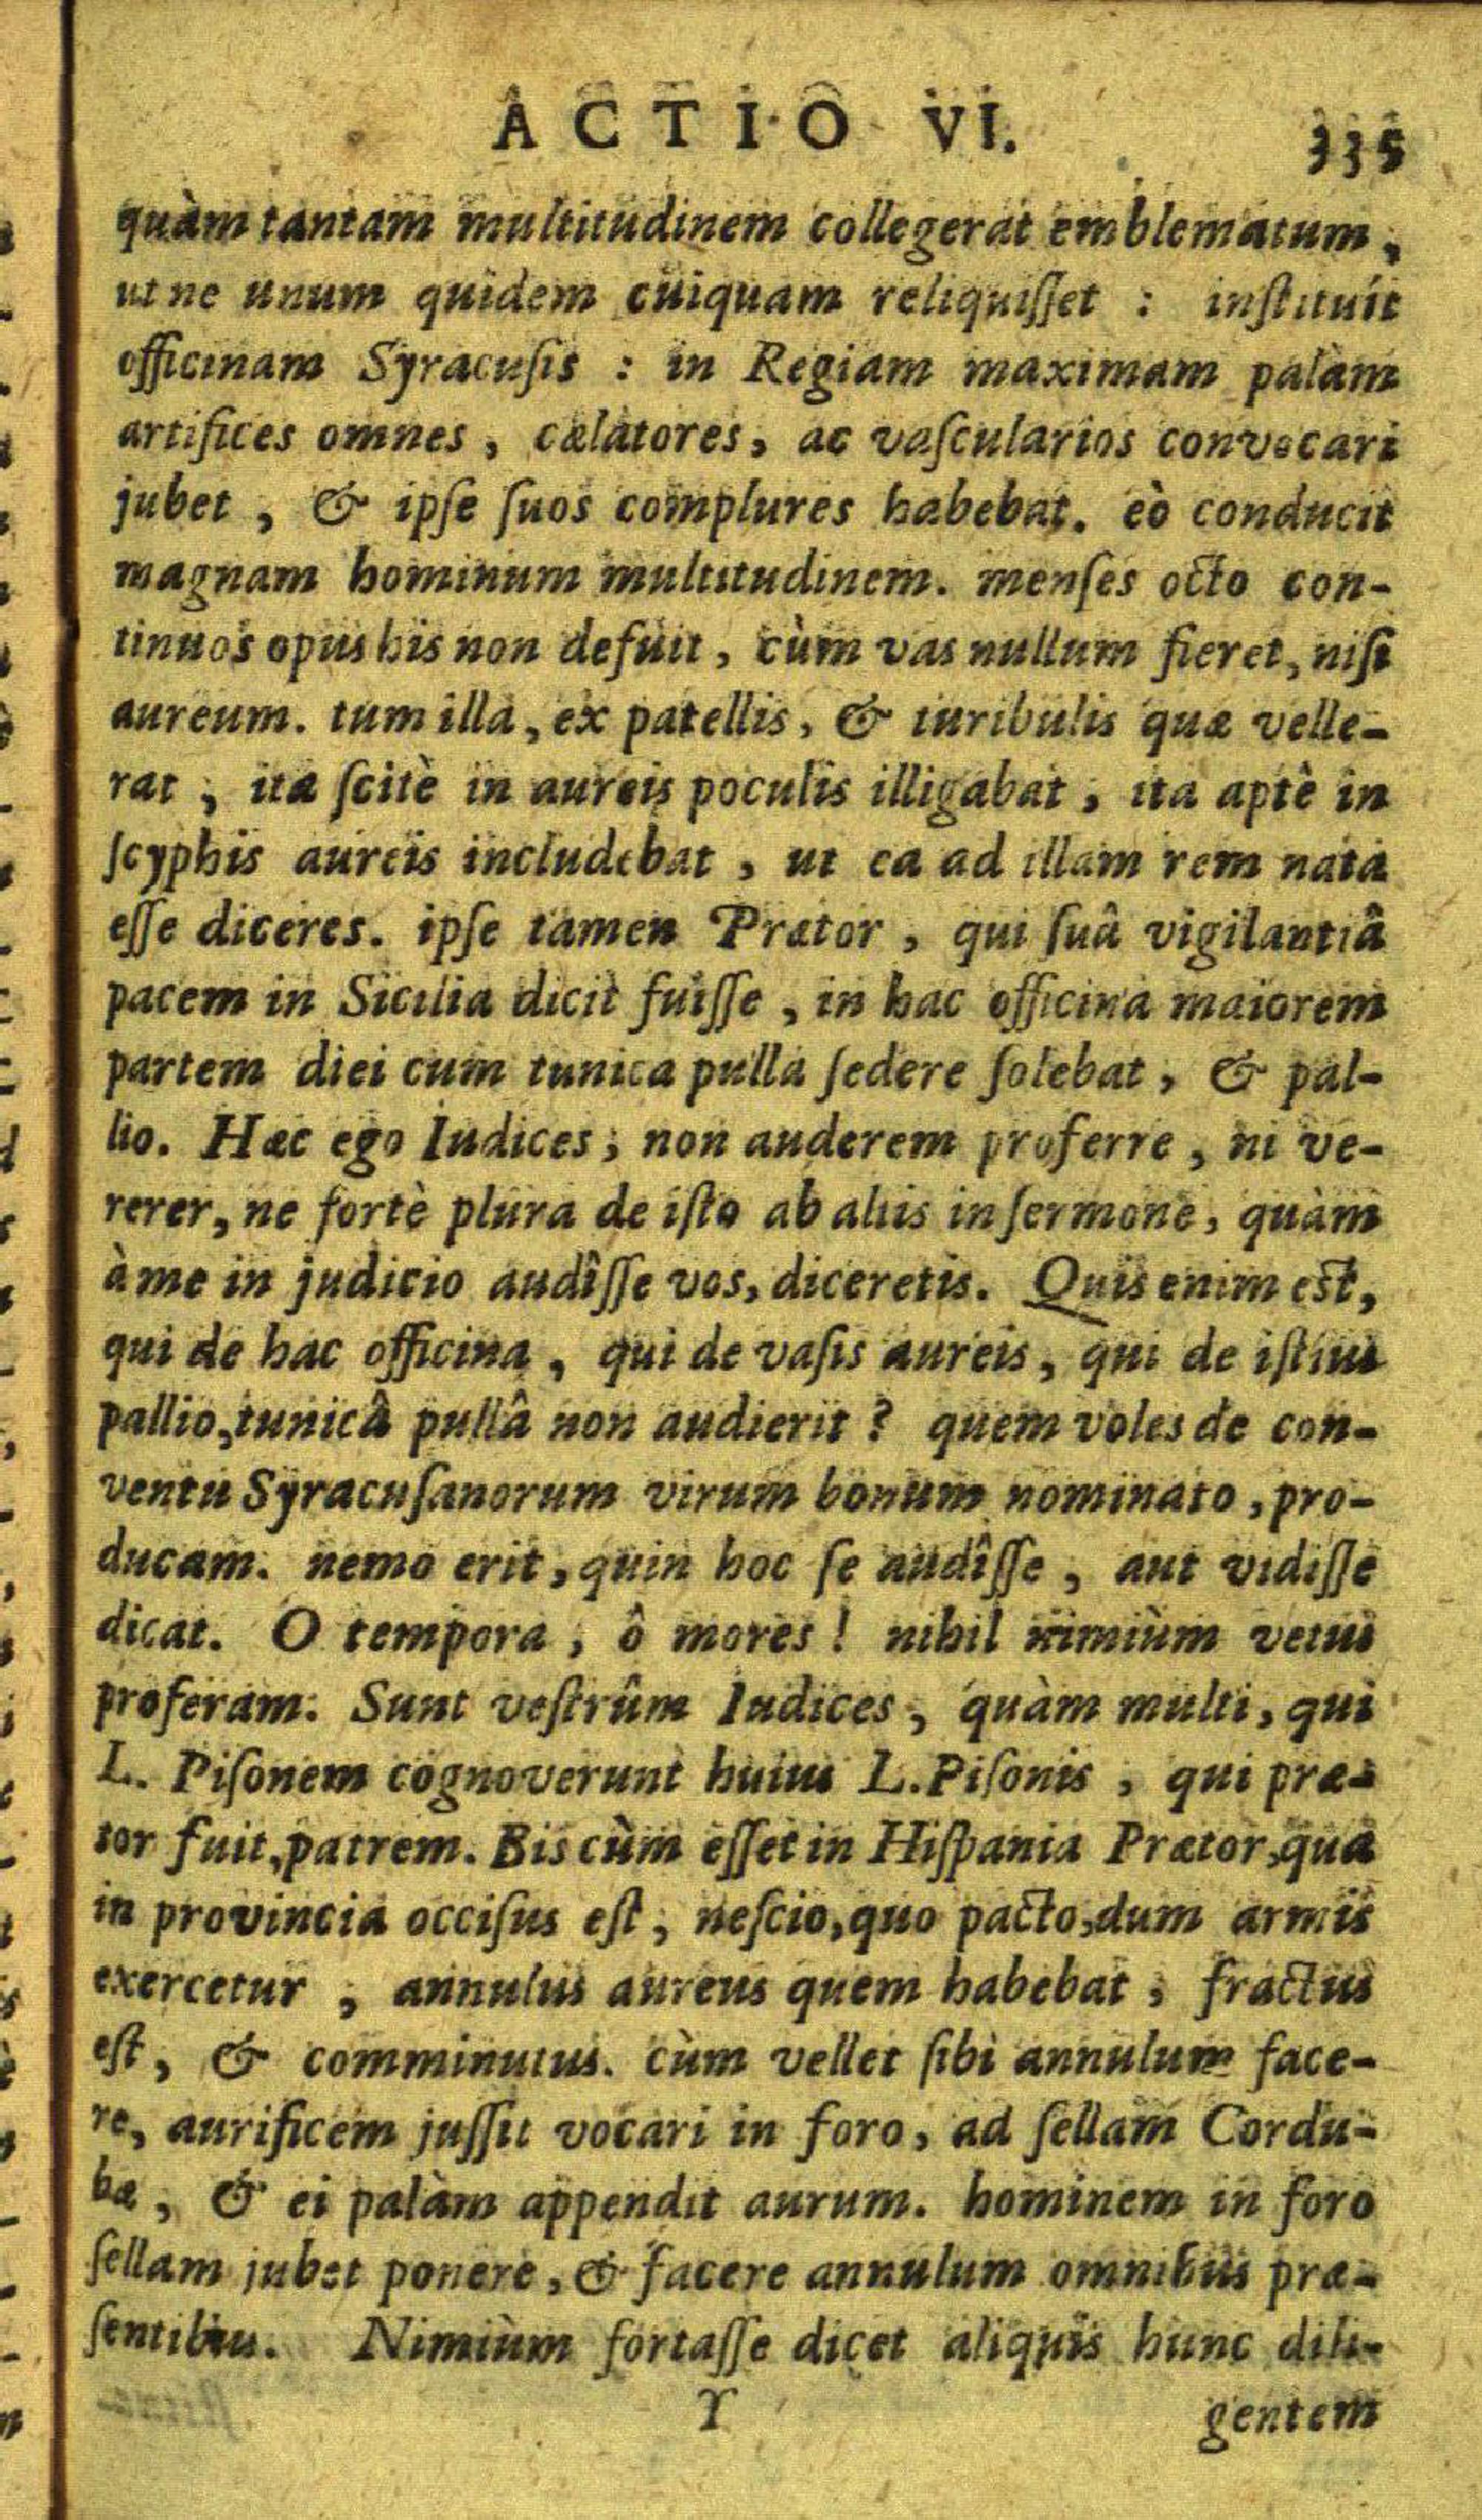 ACTIO VI. 335
quàm tantam multitudinem collegerat emblematum,
ut ne unum quidem cuiquam reliquiſſet : inſtituit
officinam Syracuſis : in Regiam maximam palàm
artifices omnes, cælatores, ac vaſcularios convocari
jubet, & ipſe ſuos complures habebat. eò conducit
magnam hominum multitudinem. menſes octo con-
tinuos opus his non defuit, cùm vas nullum fieret, niſi
aureum. tum illa, ex patellis, & turibulis quæ velle-
rat, ita ſcitè in aureis poculis illigabat, ita aptè in
ſcyphis aureis includebat, ut ea ad illam rem nata
eſſe diceres. ipſe tamen Prætor, qui ſuâ vigilantiâ
pacem in Sicilia dicit fuiſſe, in hac officina maiorem
partem diei cum tunica pulla ſedere ſolebat, & pal-
lio. Hæc ego Iudices, non auderem proferre, ni ve-
rerer, ne fortè plura de iſto ab aliis in ſermone, quàm
à me in judicio audîſſe vos, diceretis. Quis enim est,
qui de hac officina, qui de vaſis aureis, qui de iſtius
pallio, tunicâ pullâ non audierit ? quem voles de con-
ventu Syracuſanorum virum bonum nominato, pro-
ducam. nemo erit, quin hoc ſe audîſſe, aut vidiſſe
dicat. O tempora, ô mores ! nihil nimiùm vetus
proferam. Sunt veſtrûm Iudices, quàm multi, qui
L. Piſonem cognoverunt huius L. Piſonis, qui præ-
tor fuit, patrem. Bis cùm eſſet in Hiſpania Prætor, qua
in provincia occiſus eſt, neſcio, quo pacto, dum armis
exercetur, annulus aureus quem habebat, fractus
eſt, & comminutus. cùm vellet ſibi annulum face-
re, aurificem juſſit vocari in foro, ad ſellam Cordu-
bæ, & ei palàm appendit aurum. hominem in foro
ſellam jubet ponere, & facere annulum omnibus præ-
ſentibus. Nimiùm fortaſſe dicet aliquis hunc dili-
Y gentem